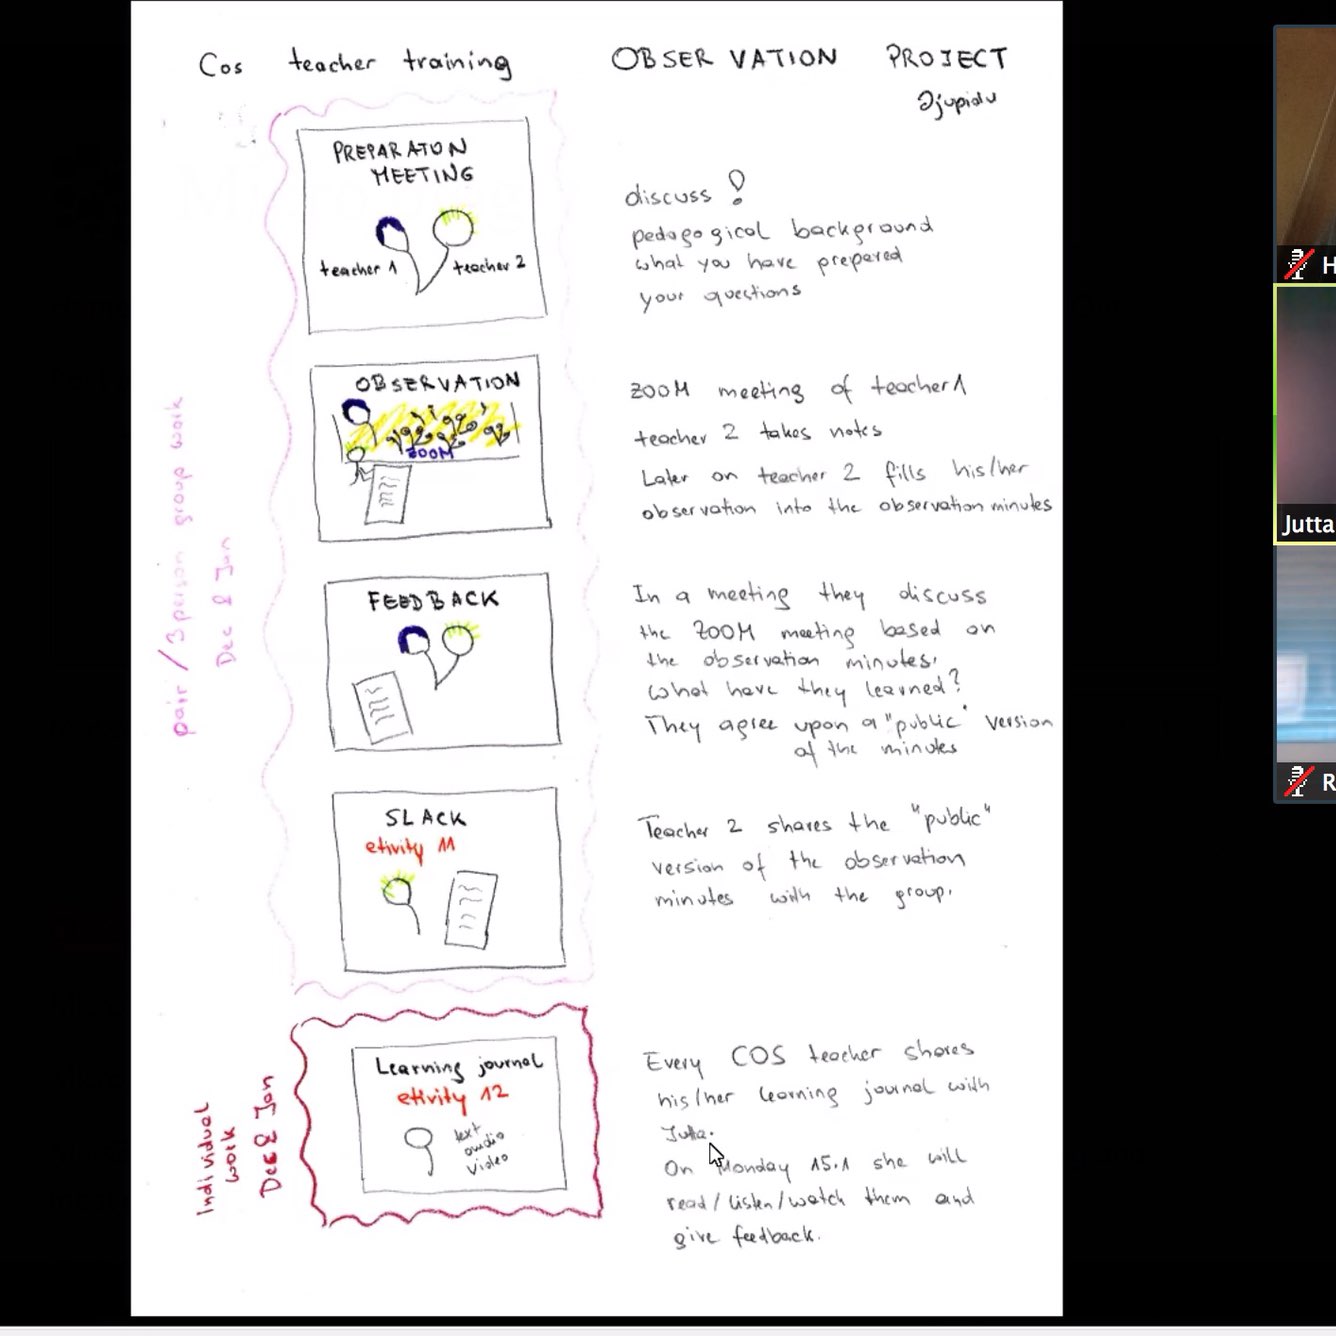 Cos teacher training OBSERVATION PROJECT
@jupidu
PREPARATON
MEETING
teacher 1 teacher 2
discuss!
pedagogical background
what you have prepared
your questions
OBSERVATION
ZOOM
ZOOM meeting of teacher 1
teacher 2 takes notes
Later on teacher 2 fills his/her
observation into the observation minutes
pair / 3 person group work
Dec & Jan
FEEDBACK
In a meeting they discuss
the ZOOM meeting based on
the observation minutes.
What have they learned?
They agree upon a "public" version
of the minutes
SLACK
etivity 11
Teacher 2 shares the "public"
version of the observation
minutes with the group.
Individual
work
Dec & Jan
Learning journal
etivity 12
text
audio
video
Every COS teacher shares
his/her learning journal with
Jutta.
On Monday 15.1 she will
read/listen/watch them and
give feedback.
H
Jutta
R